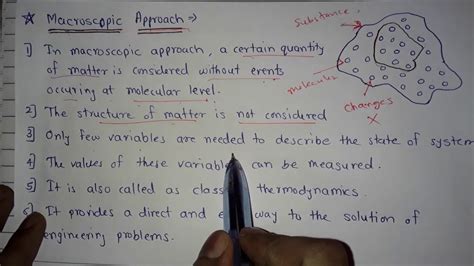 ☆ Macroscopic Approach :→
1] In macroscopic approach, a certain quantity
of matter is considered without events
occuring at molecular level.
2] The structure of matter is not considered
3] Only few variables are needed to describe the state of system
4] The values of these variables can be measured.
5] It is also called as thermodynamics.
It provides a direct and way to the solution of
engineering problems.
Substance
molecules
changes
X